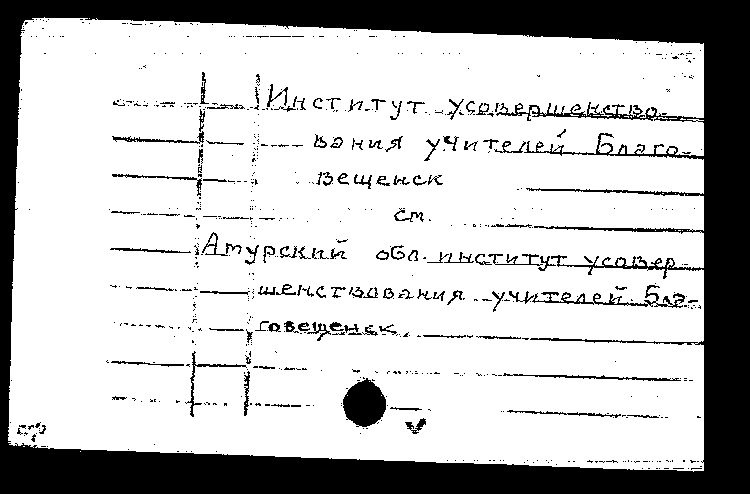 Институт усовершенство-
вания учителей Благо-
вещенск
см.
Амурский обл. институт усовер-
шенствования учителей. Бла-
говещенск.